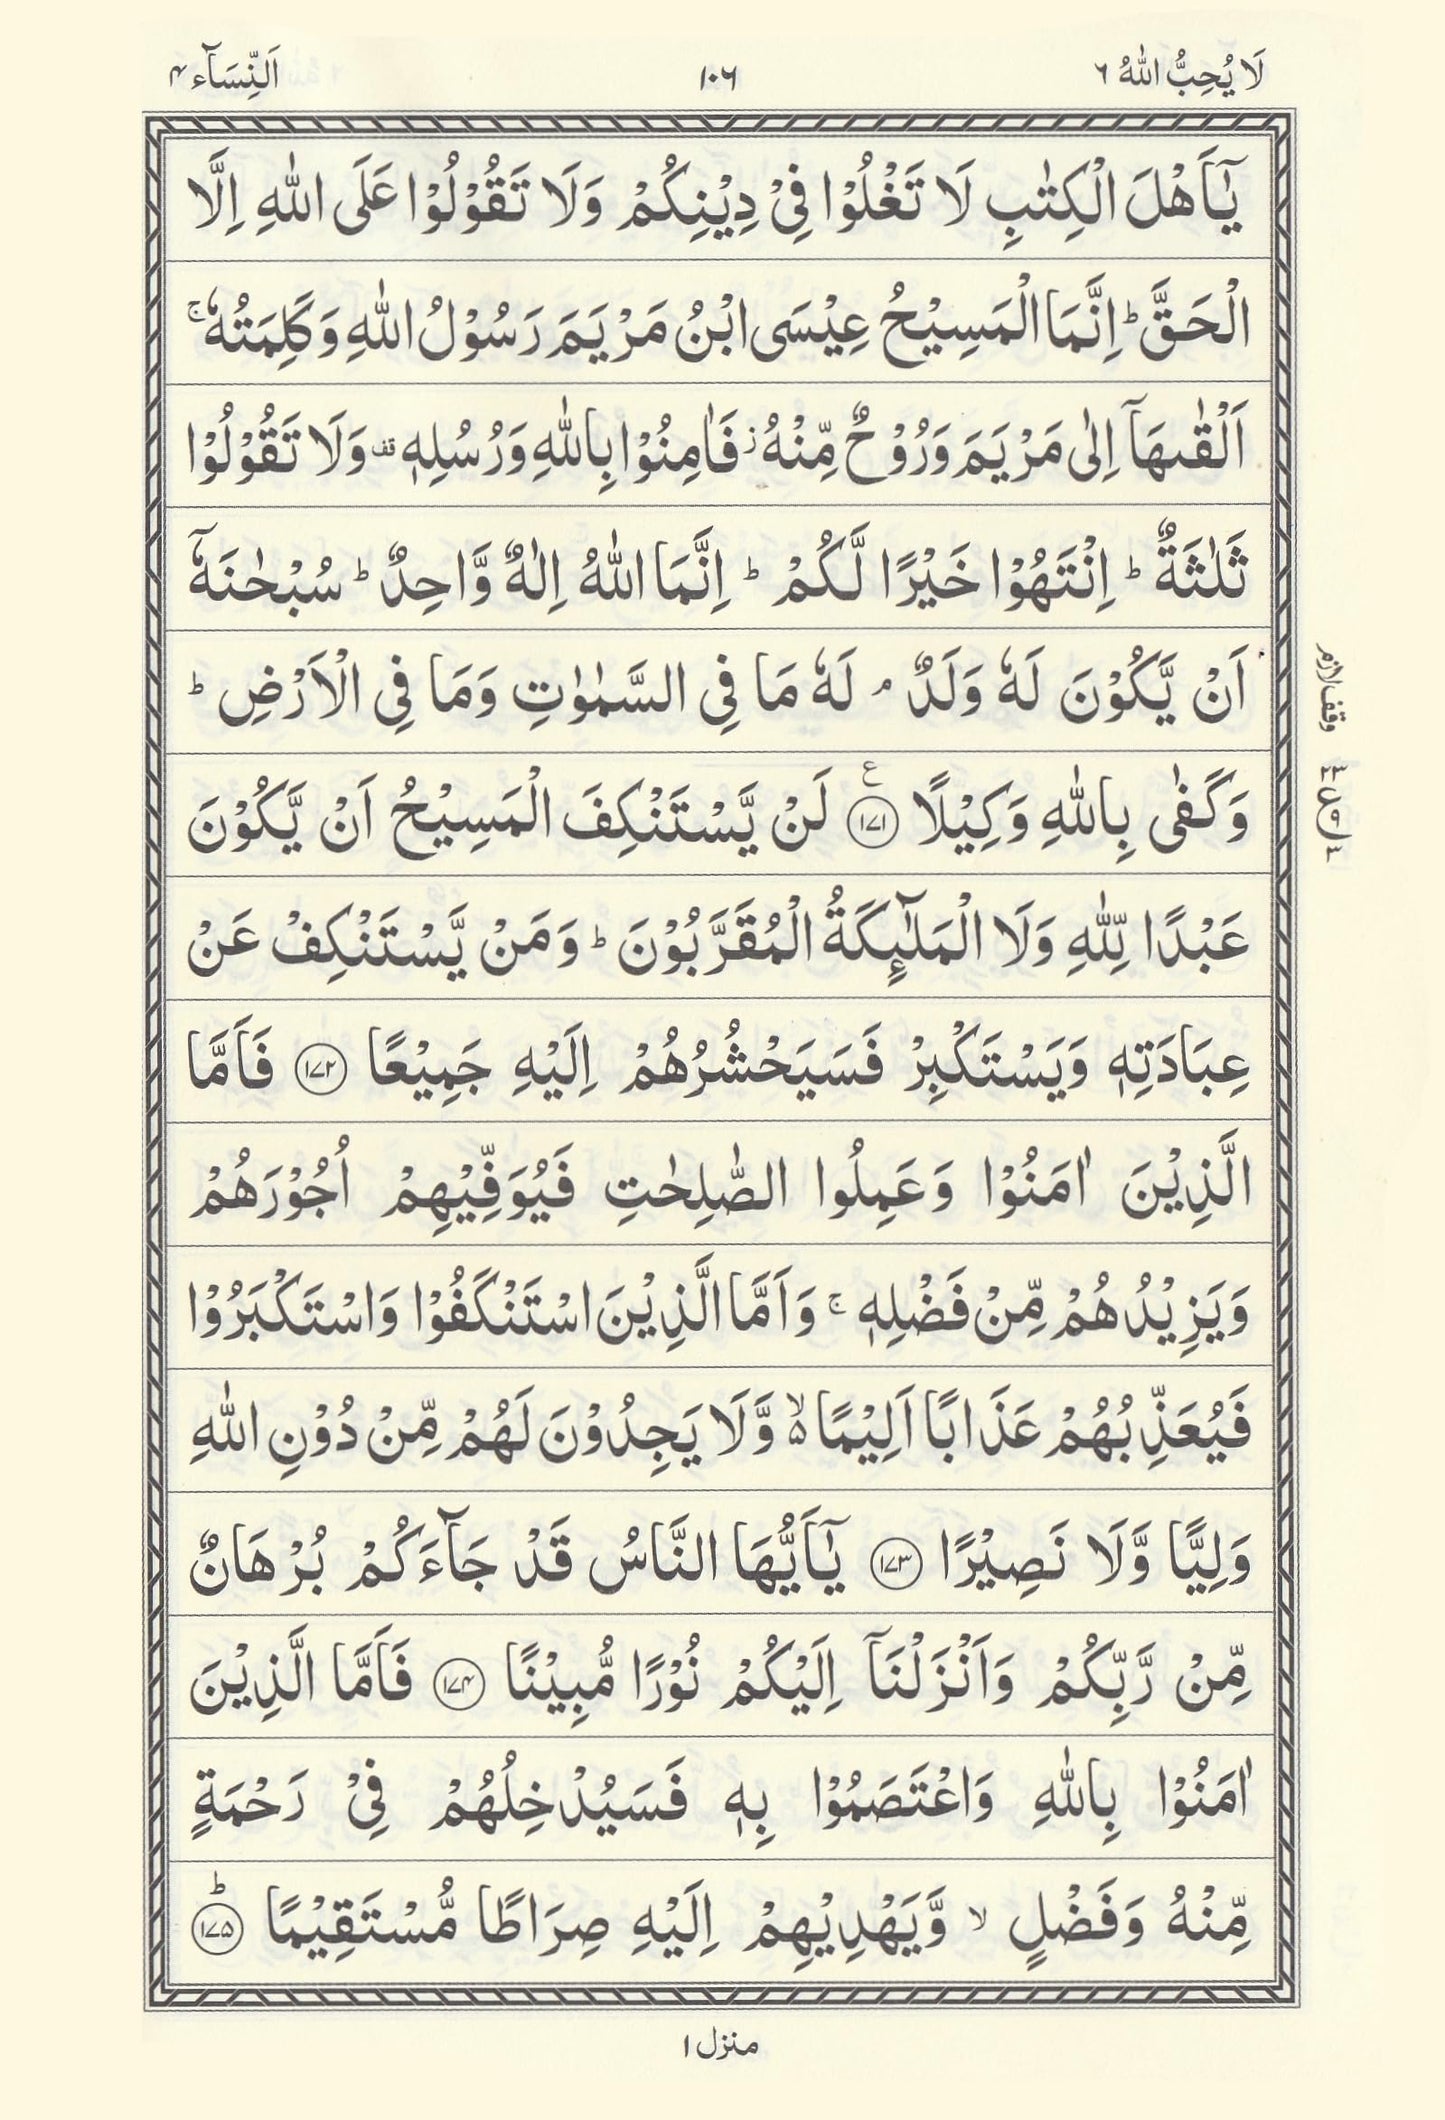 لَا يُحِبُّ اللّٰهُ ٦
١٠٦
اَلنِّسَآء ۴
يٰۤاَهْلَ الْكِتٰبِ لَا تَغْلُوْا فِيْ دِيْنِكُمْ وَلَا تَقُوْلُوْا عَلَى اللّٰهِ اِلَّا
الْحَقَّ ؕ اِنَّمَا الْمَسِيْحُ عِيْسَى ابْنُ مَرْيَمَ رَسُوْلُ اللّٰهِ وَكَلِمَتُهٗ ۚ
اَلْقٰىهَاۤ اِلٰى مَرْيَمَ وَرُوْحٌ مِّنْهُ ؗ فَاٰمِنُوْا بِاللّٰهِ وَرُسُلِهٖ ۫ وَلَا تَقُوْلُوْا
ثَلٰثَةٌ ؕ اِنْتَهُوْا خَيْرًا لَّكُمْ ؕ اِنَّمَا اللّٰهُ اِلٰهٌ وَّاحِدٌ ؕ سُبْحٰنَهٗۤ
اَنْ يَّكُوْنَ لَهٗ وَلَدٌ ۘ لَهٗ مَا فِي السَّمٰوٰتِ وَمَا فِي الْاَرْضِ ؕ
وقف لازم
وَكَفٰى بِاللّٰهِ وَكِيْلًا ۧ ﴿١٧١﴾ لَنْ يَّسْتَنْكِفَ الْمَسِيْحُ اَنْ يَّكُوْنَ
عَبْدًا لِّلّٰهِ وَلَا الْمَلٰٓئِكَةُ الْمُقَرَّبُوْنَ ؕ وَمَنْ يَّسْتَنْكِفْ عَنْ
عِبَادَتِهٖ وَيَسْتَكْبِرْ فَسَيَحْشُرُهُمْ اِلَيْهِ جَمِيْعًا ﴿١٧٢﴾ فَاَمَّا
الَّذِيْنَ اٰمَنُوْا وَعَمِلُوا الصّٰلِحٰتِ فَيُوَفِّيْهِمْ اُجُوْرَهُمْ
وَيَزِيْدُهُمْ مِّنْ فَضْلِهٖ ۚ وَاَمَّا الَّذِيْنَ اسْتَنْكَفُوْا وَاسْتَكْبَرُوْا
فَيُعَذِّبُهُمْ عَذَابًا اَلِيْمًا ۙ۬ وَّلَا يَجِدُوْنَ لَهُمْ مِّنْ دُوْنِ اللّٰهِ
وَلِيًّا وَّلَا نَصِيْرًا ﴿١٧٣﴾ يٰۤاَيُّهَا النَّاسُ قَدْ جَآءَكُمْ بُرْهَانٌ
مِّنْ رَّبِّكُمْ وَاَنْزَلْنَاۤ اِلَيْكُمْ نُوْرًا مُّبِيْنًا ﴿١٧۴﴾ فَاَمَّا الَّذِيْنَ
اٰمَنُوْا بِاللّٰهِ وَاعْتَصَمُوْا بِهٖ فَسَيُدْخِلُهُمْ فِيْ رَحْمَةٍ
مِّنْهُ وَفَضْلٍ ۙ وَّيَهْدِيْهِمْ اِلَيْهِ صِرَاطًا مُّسْتَقِيْمًا ؕ ﴿١٧۵﴾
منزل ١